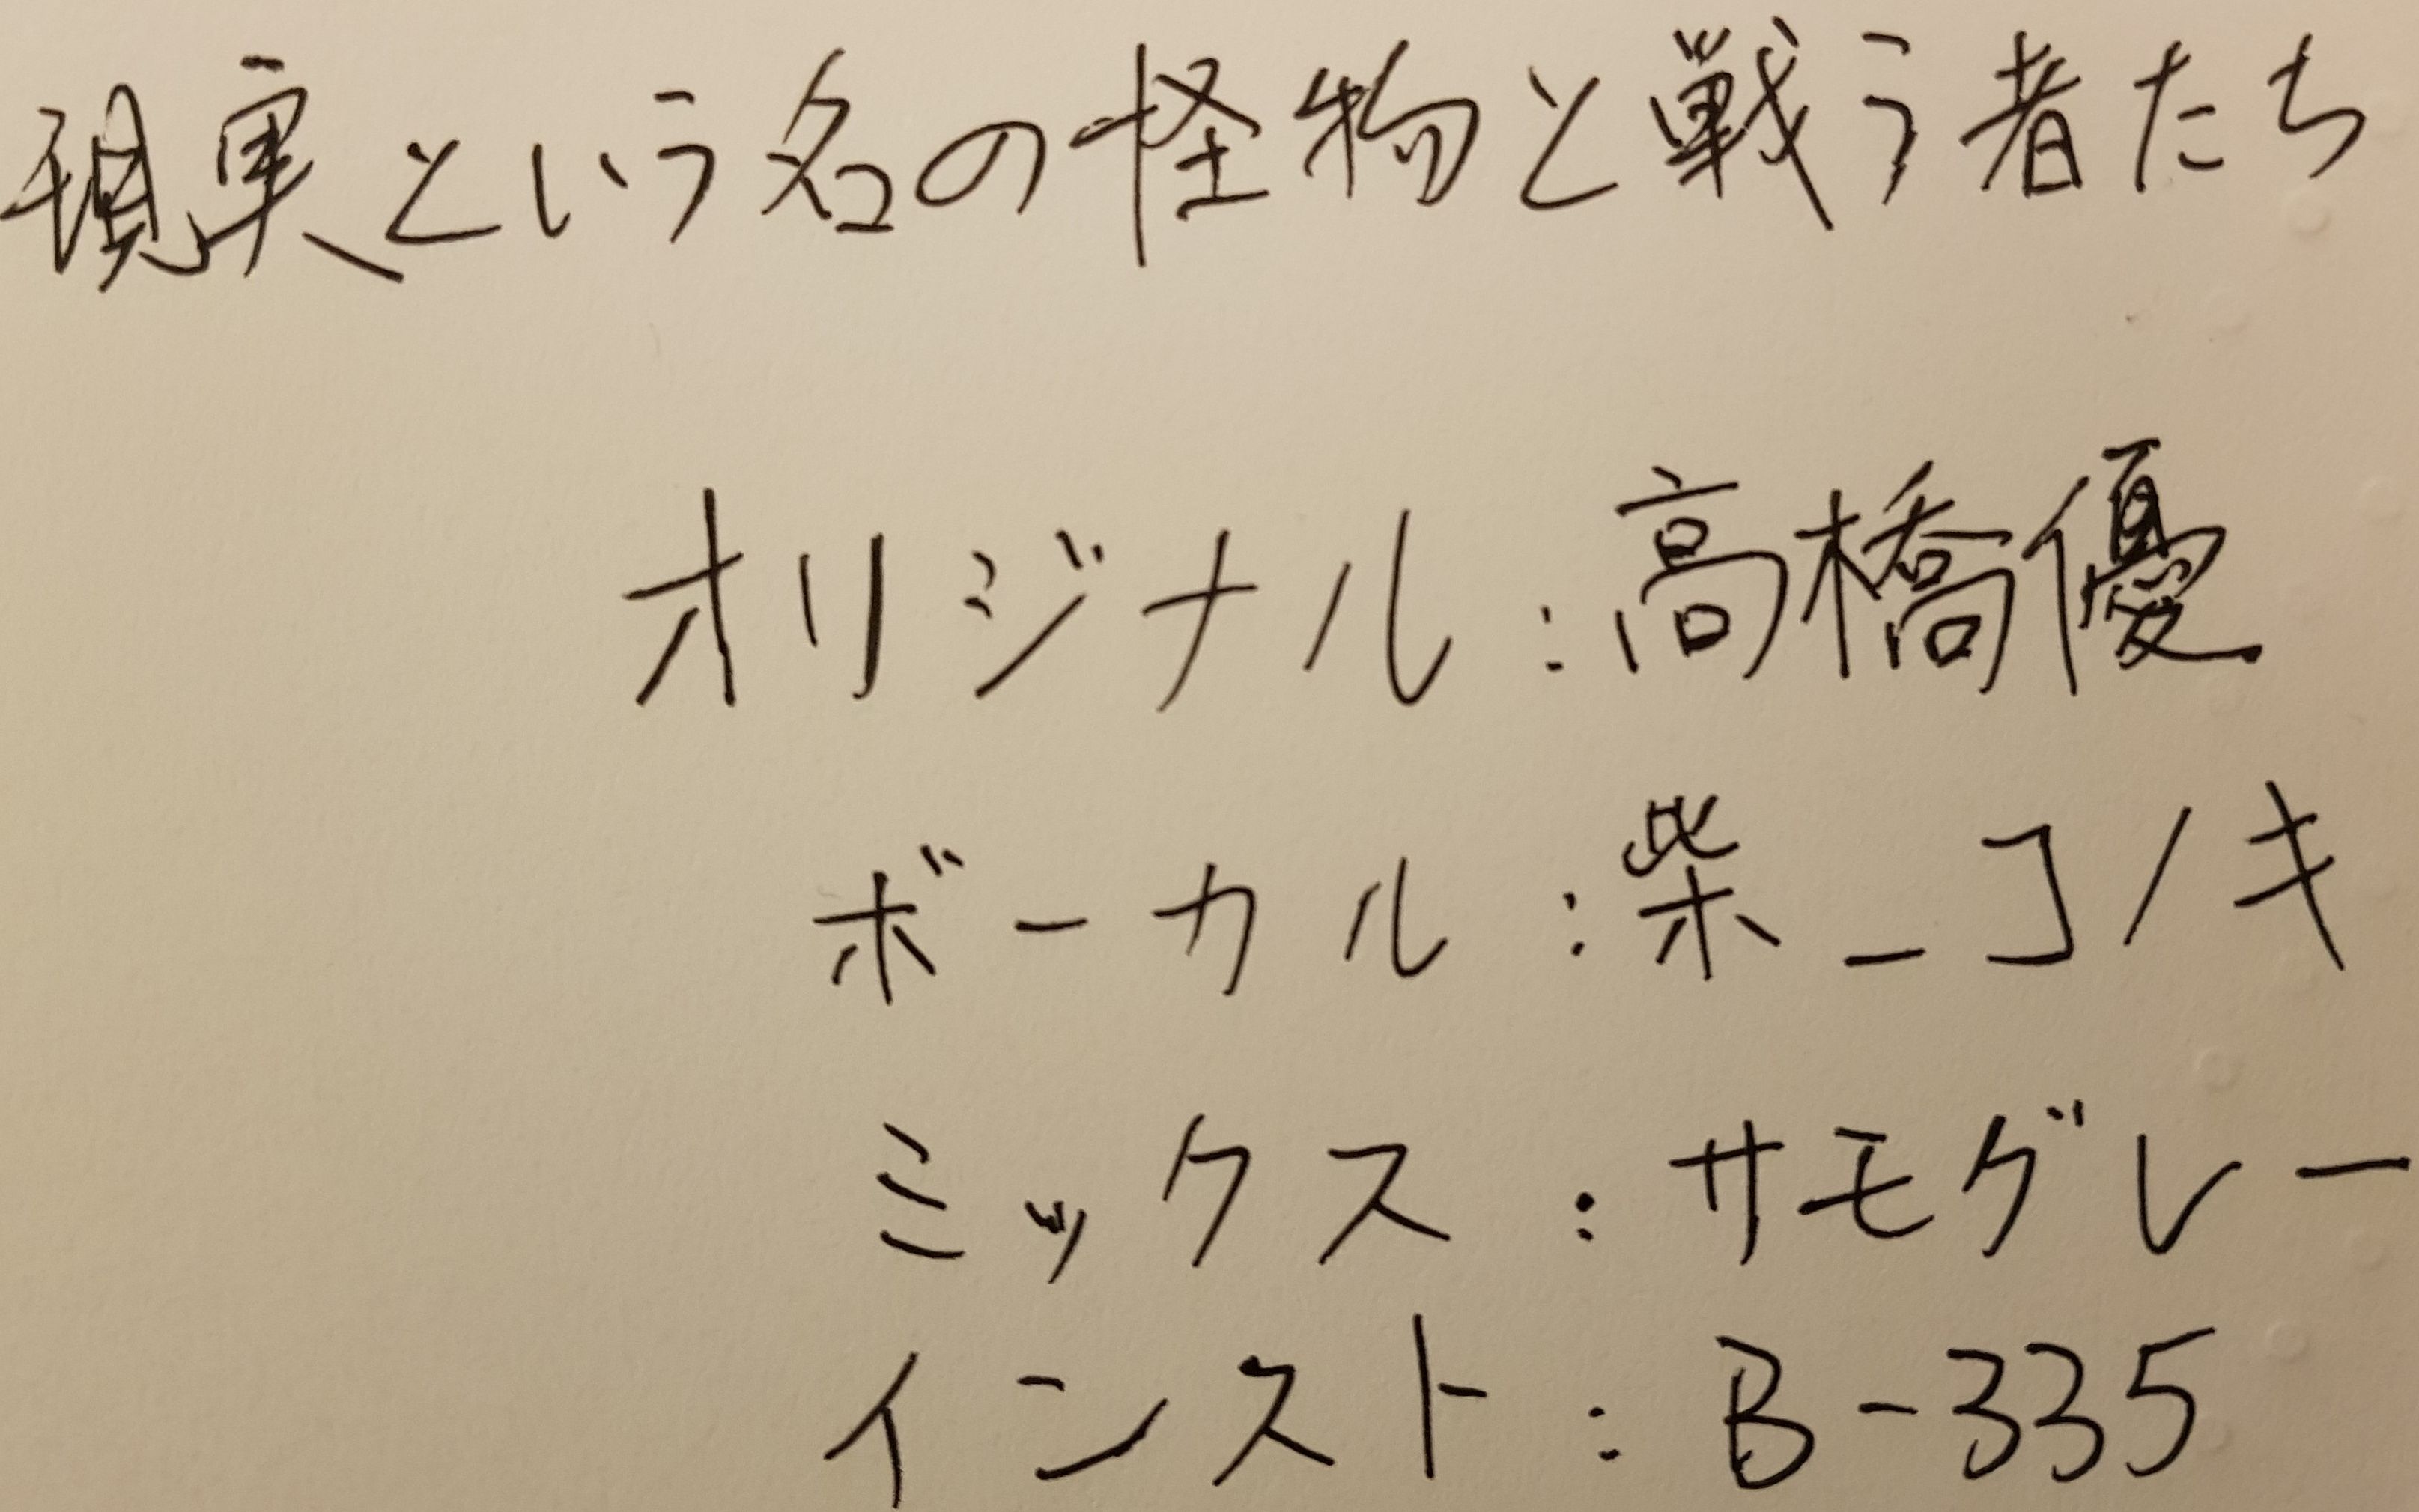 現実という名の怪物と戦う者たち
オリジナル:高橋優
ボーカル:柴_コノキ
ミックス:サモグレー
インスト:B-335